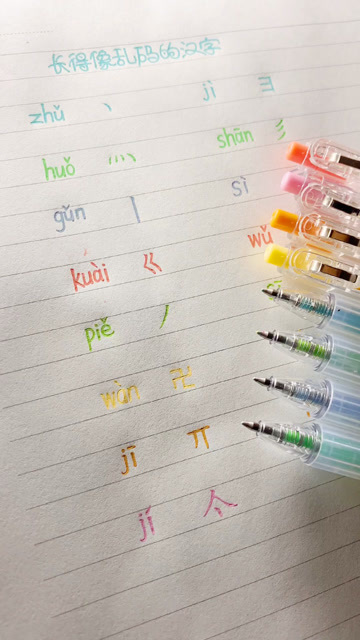 长得像乱码的汉字
zhǔ 丶 jì 彐
huǒ 灬 shān 彡
gǔn 丨 sì
kuài 巜 wǔ
piě 丿
wàn 卍
jī 丌
jí 亼